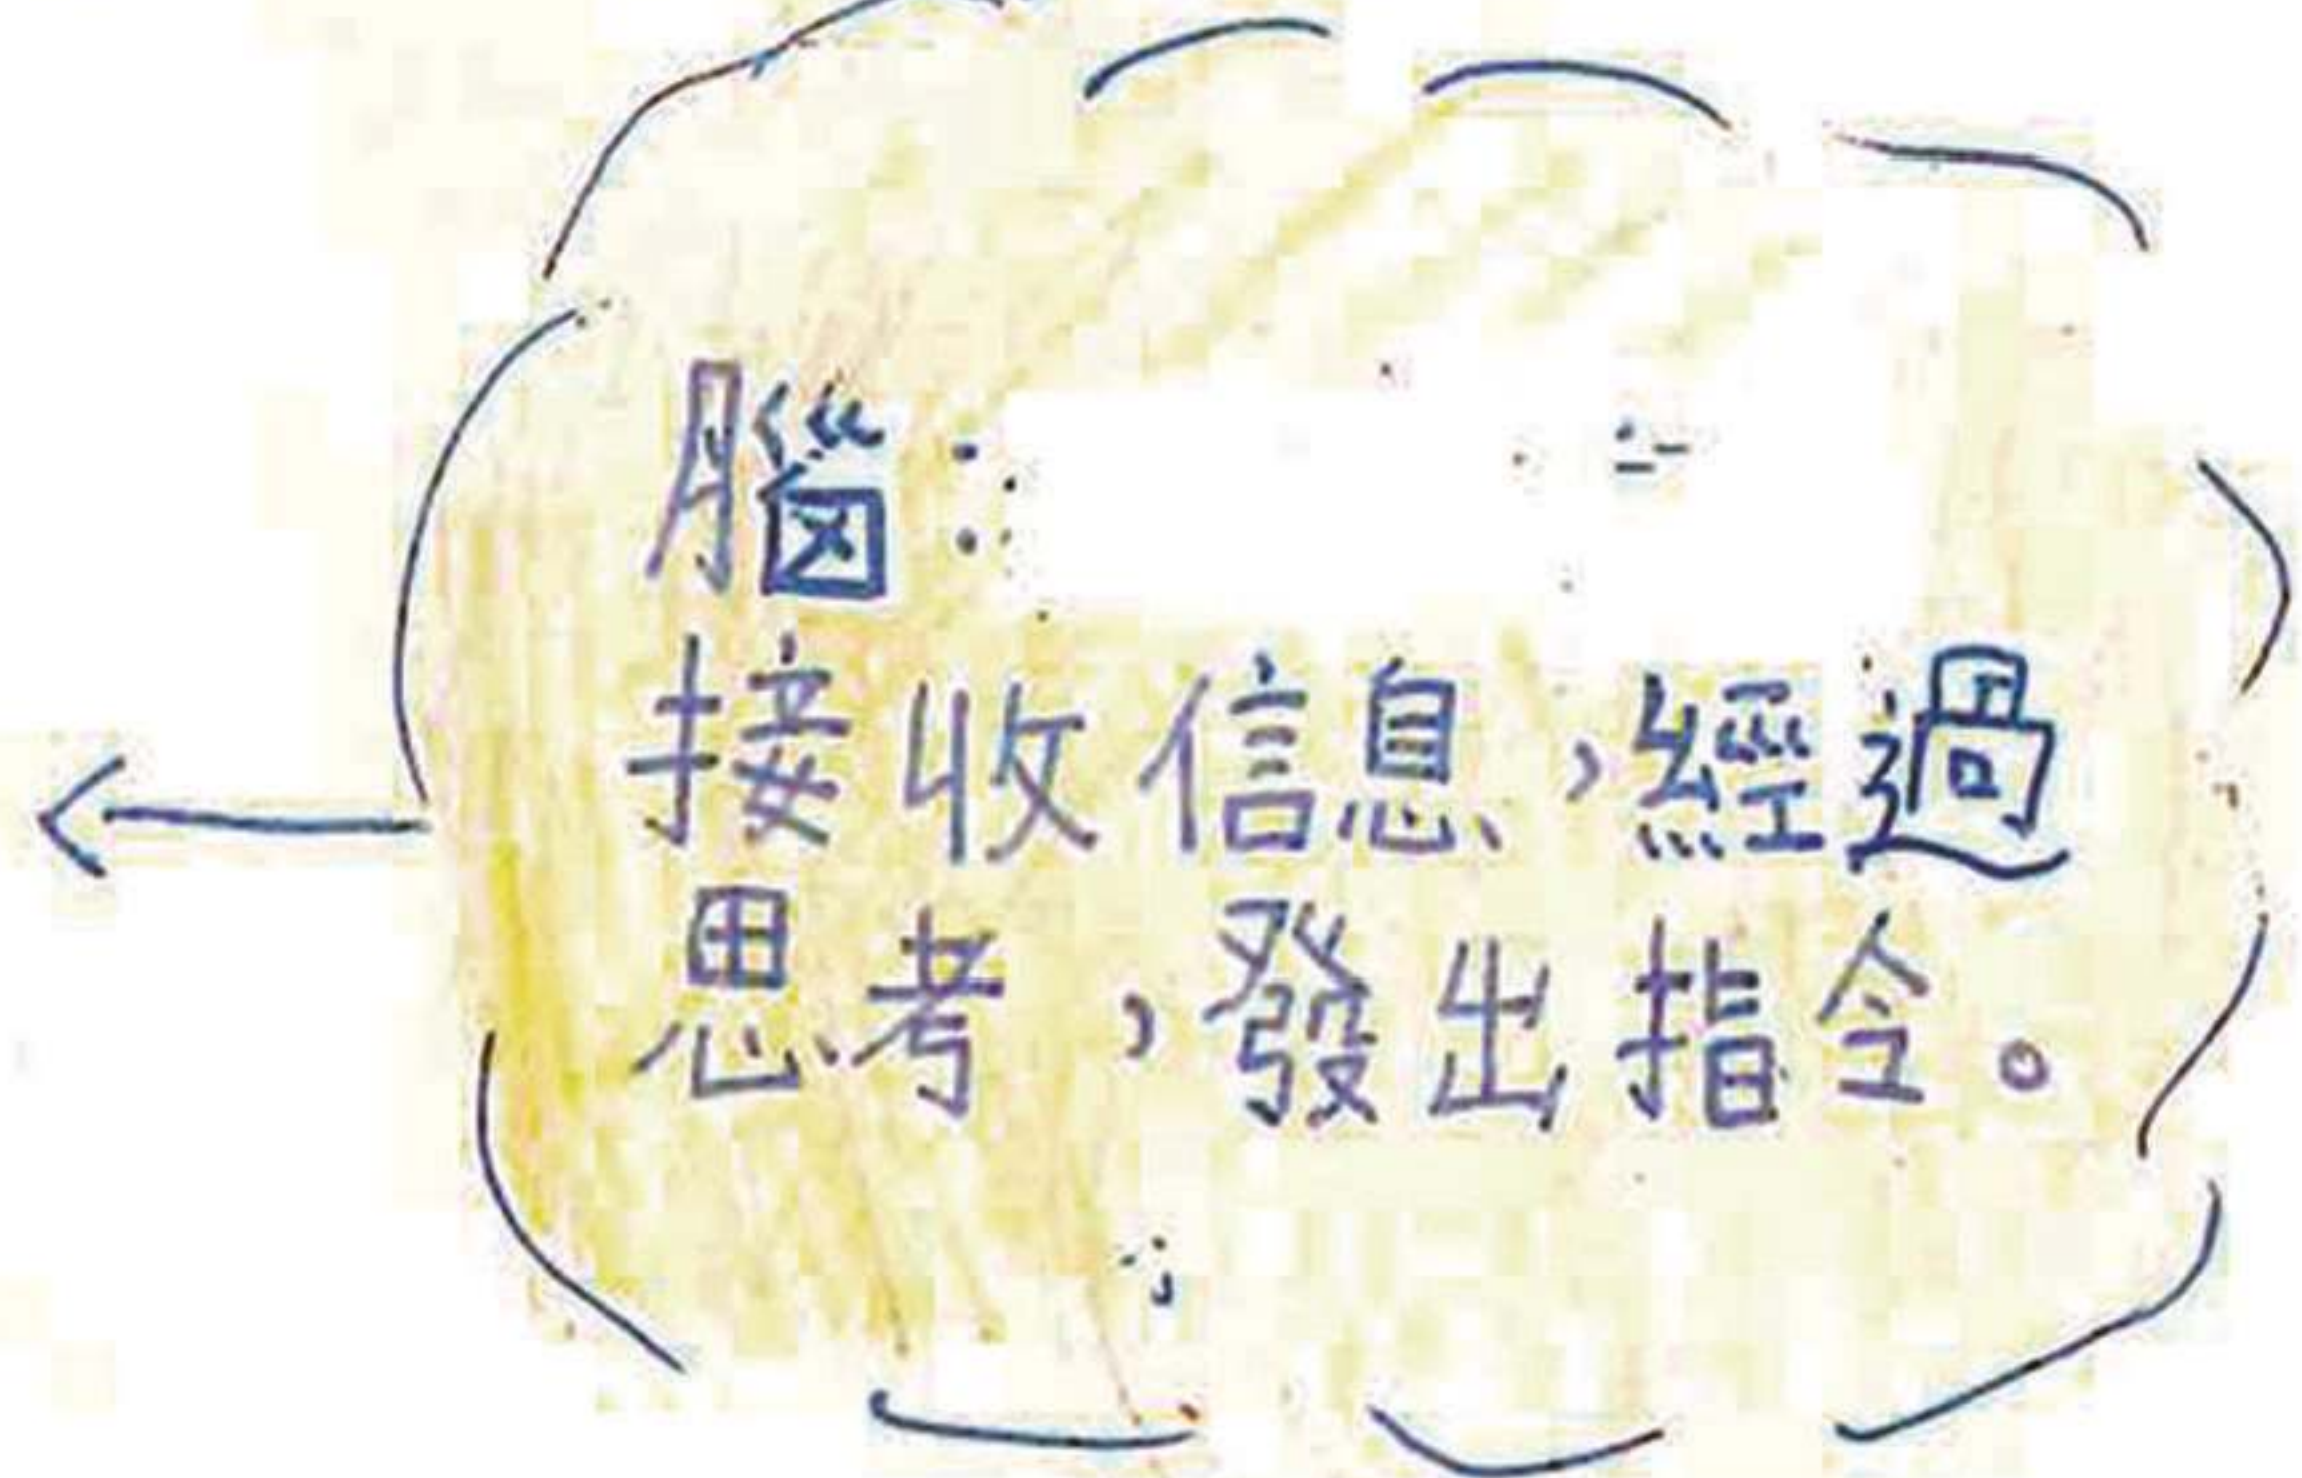 腦：
接收信息，經過
思考，發出指令。